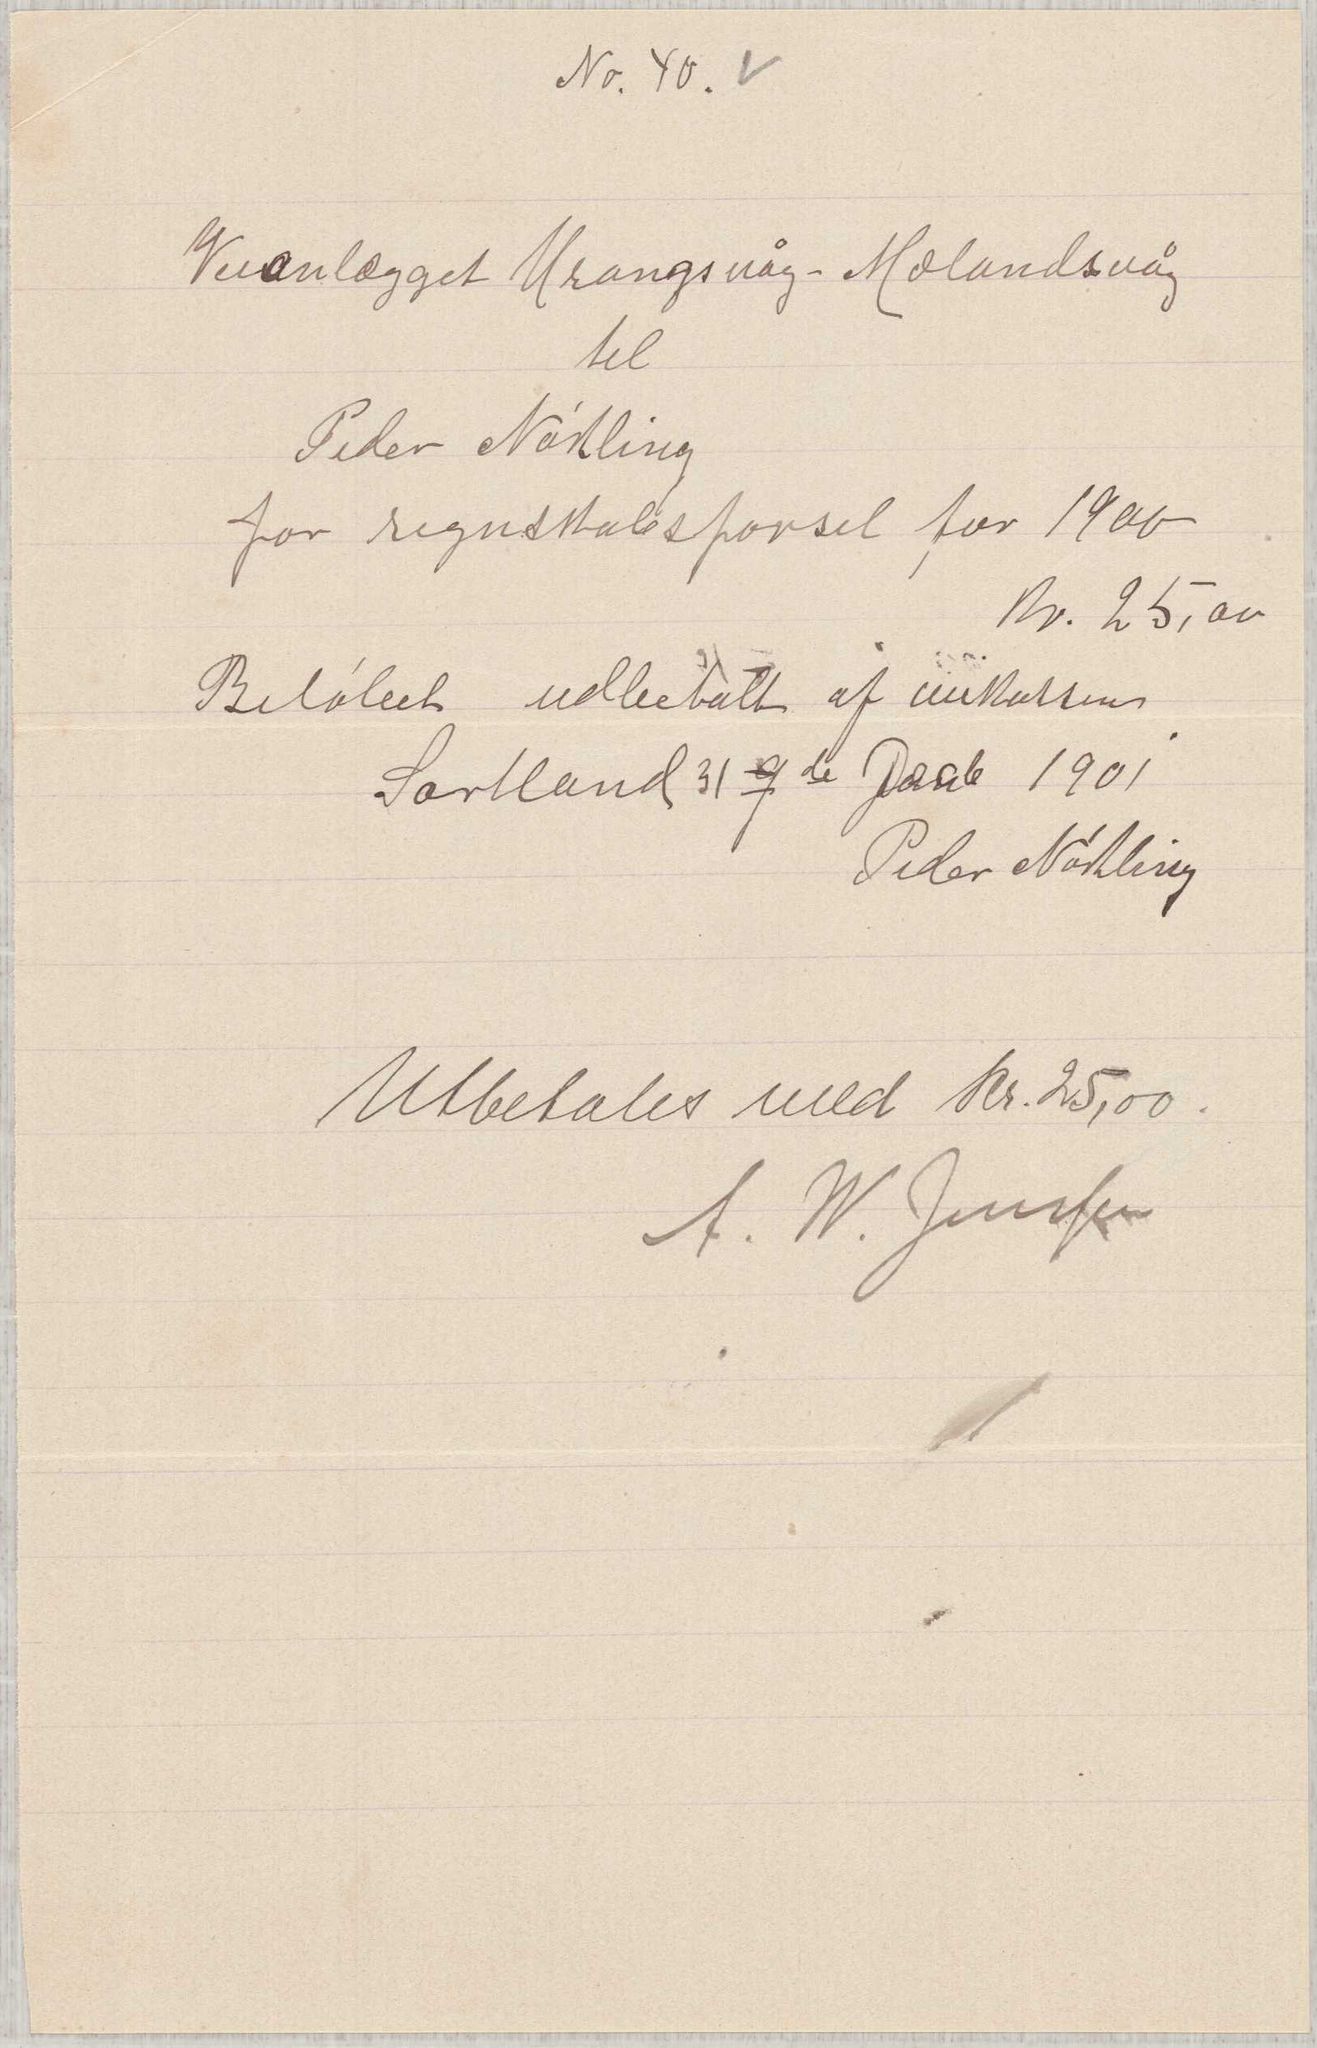 No. 40. V
Veianlægget Urangsvåg - Mælandsvåg
til
Peder Nökling
for regnskabsförsel for 1900
Kr. 25,00
Belöbet udbetalt af veikassen
Sortland 31 de 1901
Peder Nökling
Utbetales med kr. 25,00.
A. W. Jenssen